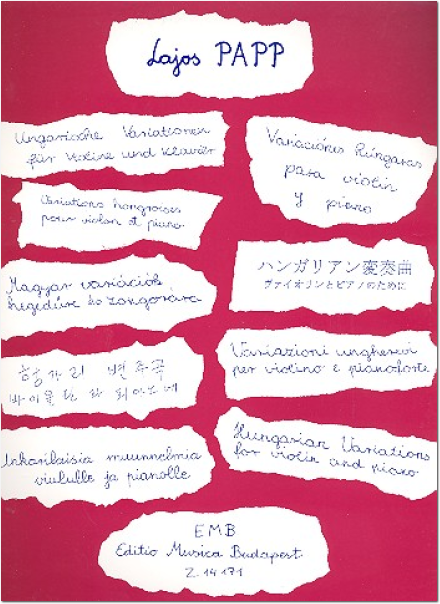 Lajos PAPP
Ungarische Variationen
für Violine und Klavier
Variations hongroises
pour violon et piano
Magyar variációk
hegedűre és zongorára
헝가리 변주곡
바이올린 과 피아노에
Unkarilaisia muunnelmia
viululle ja pianolle
Variaciónes húngaras
para violín
y piano
ハンガリアン変奏曲
ヴァイオリンとピアノのために
Variazioni ungheresi
per violino e pianoforte
Hungarian Variations
for violin and piano
EMB
Editio Musica Budapest
Z. 14 171